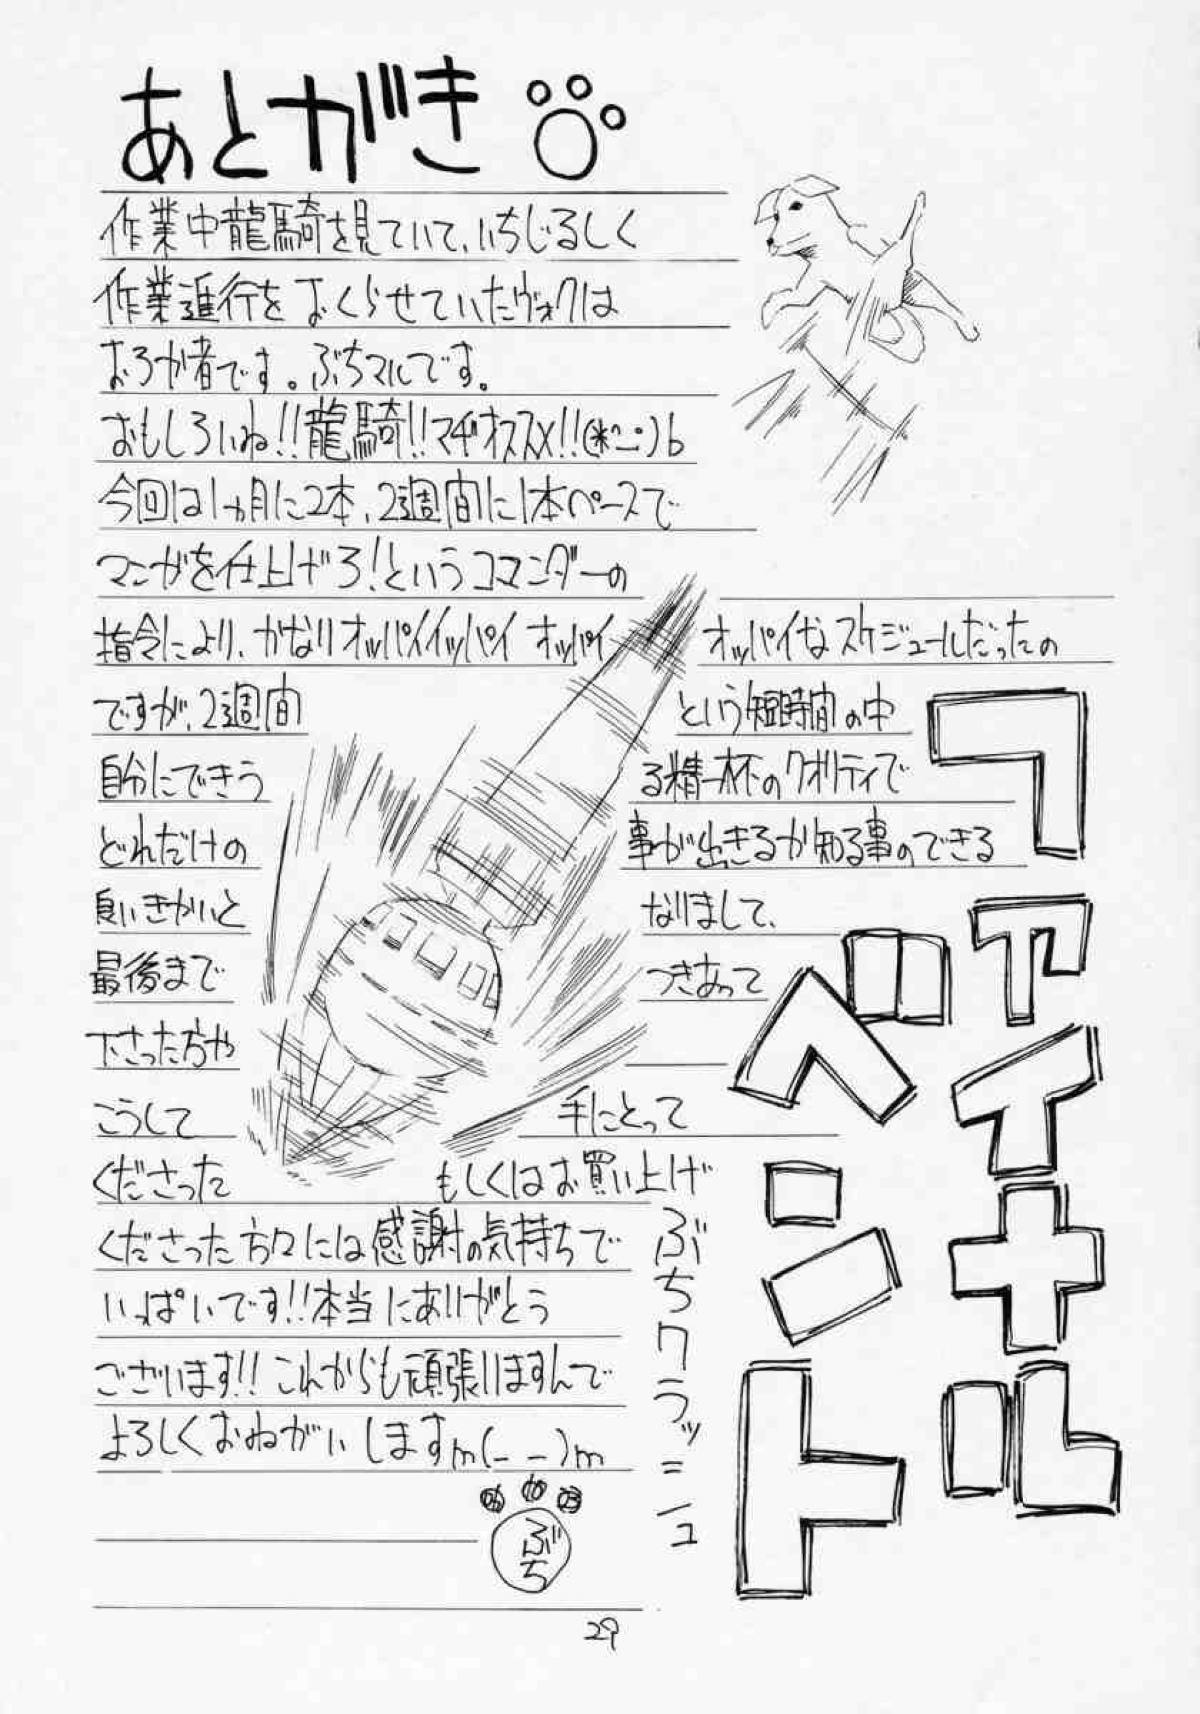 あとがき
作業中龍騎を見ていて、いちじるしく
作業進行をおくらせていたヴォクは
おろか者です。ぶちマルです。
おもしろいね!!龍騎!!マヂオススメ!!(*^-°)b
今回は1ヵ月に2本、2週間に1本ペースで
マンガを仕上げろ!というコマンダーの
指令により、かなりオッパイイッパイ オッパイ オッパイなスケジュールだったの
ですが、2週間という短時間の中
自分にできうる精一杯のクオリティで
どれだけの事が出きるか知る事のできる
良いきかいとなりまして、
最後までつきあって
下さった方や
こうして手にとって
くださったもしくはお買い上げ
くださった方々には感謝の気持ちで
いっぱいです!!本当にありがとう
ございます!!これからも頑張りますんで
よろしくおねがいしますm(_ _)m
ぶち
ファイナル
ベント
ぶちクラッシュ
29